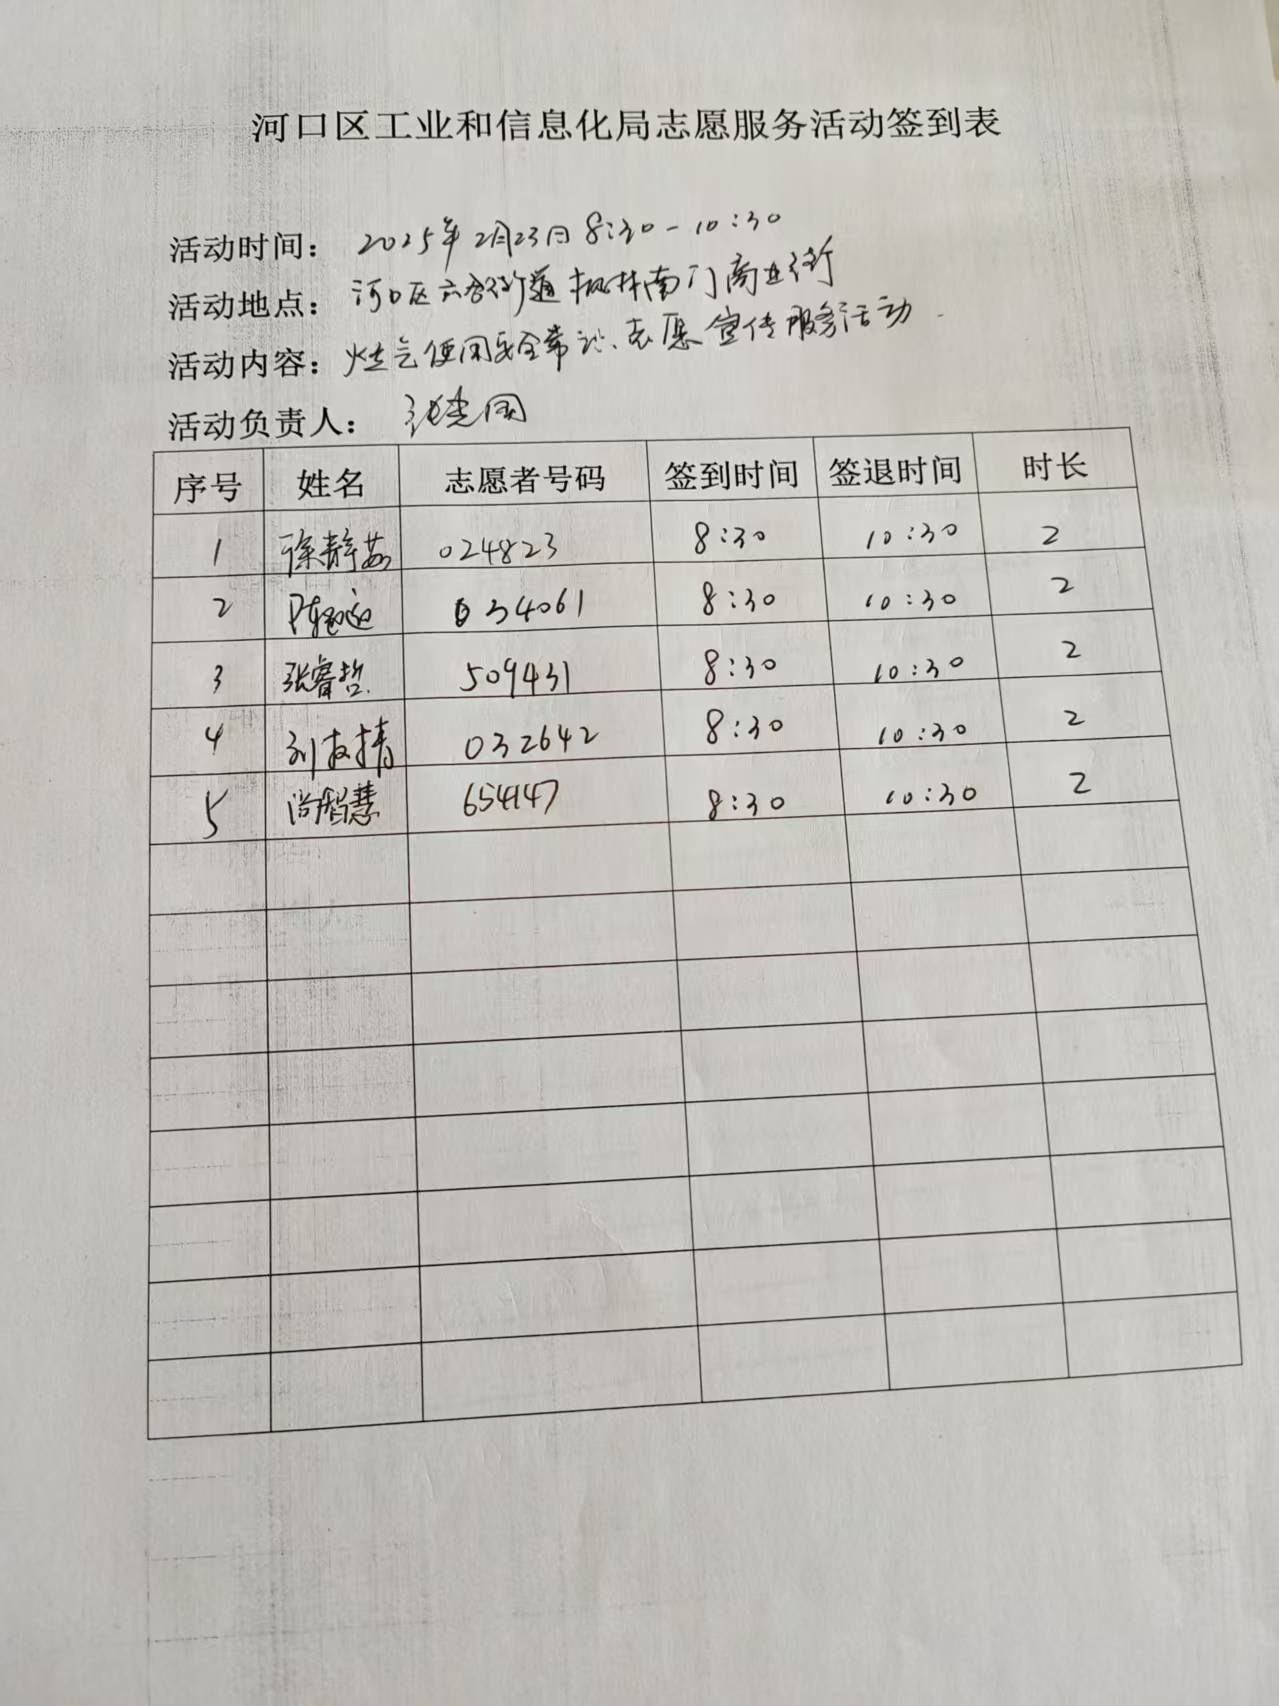 河口区工业和信息化局志愿服务活动签到表
活动时间： 2025年2月23日 8:30-10:30
活动地点： 河口区六合街道 枫林南门商业街
活动内容： 燃气使用安全常识、志愿宣传服务活动
活动负责人： 国
序号 姓名 志愿者号码 签到时间 签退时间 时长
1 徐静茹 024823 8:30 10:30 2
2 陈 034061 8:30 10:30 2
3 张睿哲 509431 8:30 10:30 2
4 刘 032642 8:30 10:30 2
5 尚智慧 654147 8:30 10:30 2